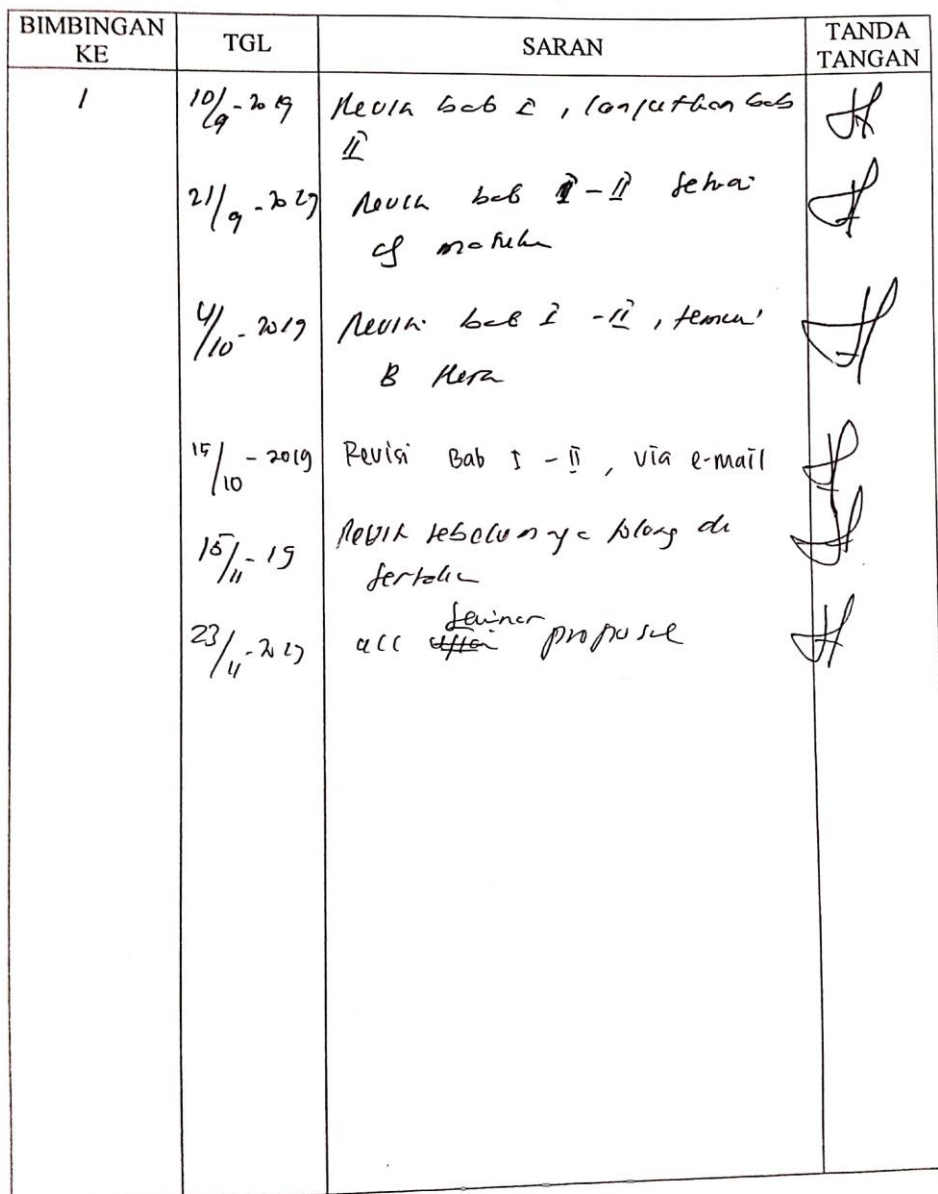 BIMBINGAN KE TGL SARAN TANDA TANGAN
1 10/9-2019 Revisi bab I, lanjutkan bab
II
21/9-2019 Revisi bab I-II sesuai
dg masukan
4/10-2019 Revisi bab I-II, temui
B Hera
15/10-2019 Revisi Bab I-II, via e-mail
15/11-19 Revisi sebelumnya tolong di
sertakan
seminar
23/11-2019 acc proposal